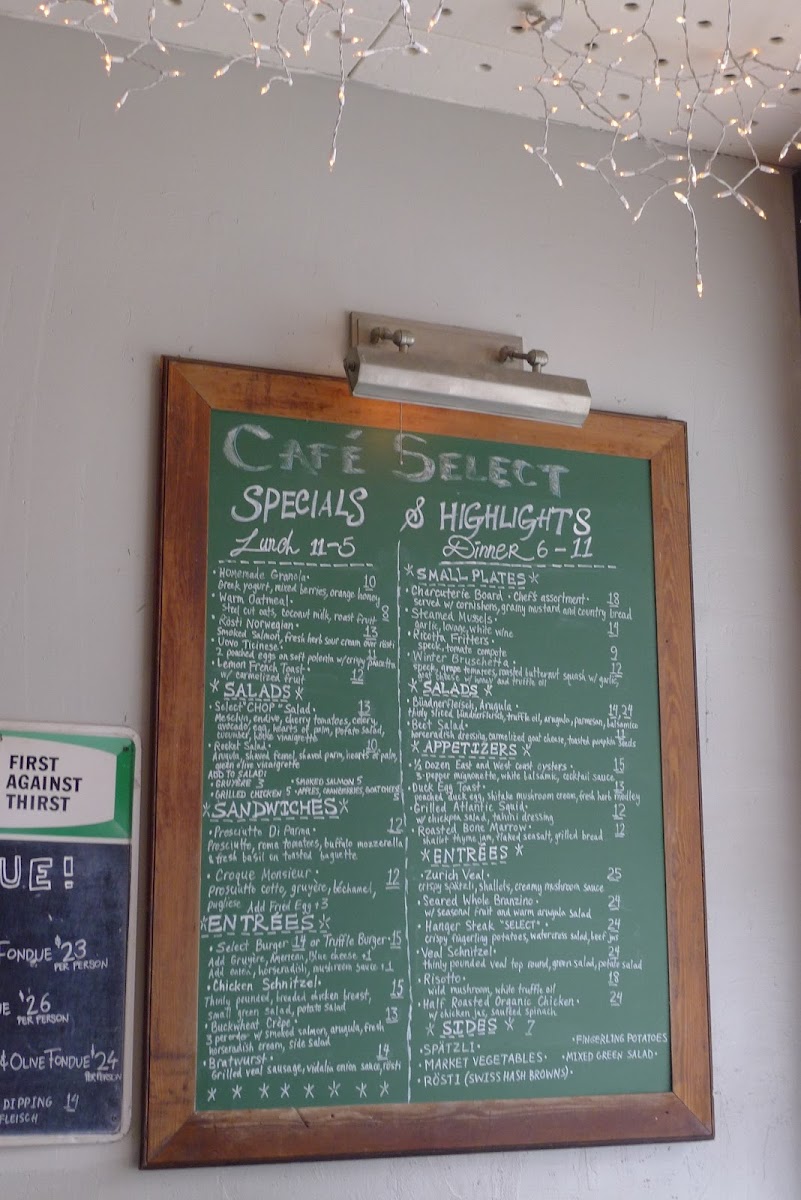 CAFÉ SELECT
SPECIALS & HIGHLIGHTS
Lunch 11-5
• Homemade Granola • 10
Greek yogurt, mixed berries, orange honey
• Warm Oatmeal •
Steel cut oats, coconut milk, roast fruit
• Rösti Norwegian • 13
Smoked salmon, fresh herb sour cream over rösti
• Uovo Ticinese • 11
2 poached eggs on soft polenta w/crispy pancetta
• Lemon French Toast • 12
w/ carmelized fruit
* SALADS *
• Select "CHOP" Salad • 13
Mesclun, endive, cherry tomatoes, celery,
avocado, egg, hearts of palm, potato salad,
cucumber, house vinaigrette
• Rocket Salad • 10
Arugula, shaved fennel, shaved parm, hearts of palm,
green olive vinaigrette
ADD TO SALAD:
• GRUYÈRE 3 • SMOKED SALMON 5
• GRILLED CHICKEN 5 • APPLES, CRANBERRIES, GOAT CHEESE 5
* SANDWICHES *
• Prosciutto Di Parma • 12
Prosciutto, roma tomatoes, buffalo mozzerella
& fresh basil on toasted baguette
• Croque Monsieur • 12
prosciutto cotto, gruyère, béchamel,
pugliese Add Fried Egg +3
* ENTRÉES *
• Select Burger 14 or Truffle Burger • 15
Add Gruyère, American, Blue cheese +1
Add onion, horseradish, mushroom sauce +1
• Chicken Schnitzel • 15
Thinly pounded, breaded chicken breast,
small green salad, potato salad
• Buckwheat Crêpe • 13
3 per order w/ smoked salmon, arugula, fresh
horseradish cream, side salad
• Bratwurst • 14
Grilled veal sausage, vidalia onion sauce, rösti
* * * * * * * *
Dinner 6 - 11
* SMALL PLATES *
• Charcuterie Board • Chef's assortment • 18
served w/ cornishons, grainy mustard and country bread
• Steamed Mussels • 14
garlic, lovage, white wine
• Ricotta Fritters • 9
speck, tomato compote
• Winter Bruschetta • 12
speck, grape tomatoes, roasted butternut squash w/ garlic,
goat cheese w/ honey and truffle oil
* SALADS *
• Bündnerfleisch, Arugula • 14, 24
thinly sliced bündnerfleisch, truffle oil, arugula, parmesan, balsamico
• Beet Salad • 11
horseradish dressing, carmelized goat cheese, toasted pumpkin seeds
* APPETIZERS *
• ½ Dozen East and West coast oysters • 15
3-pepper mignonette, white balsamic, cocktail sauce
• Duck Egg Toast • 13
poached duck egg, shitake mushroom cream, fresh herb medley
• Grilled Atlantic Squid • 12
w/ chickpea salad, tahini dressing
• Roasted Bone Marrow • 12
shallot thyme jam, flaked seasalt, grilled bread
* ENTRÉES *
• Zurich Veal • 25
crispy spätzli, shallots, creamy mushroom sauce
• Seared Whole Branzino • 24
w/ seasonal fruit and warm arugula salad
• Hanger Steak "SELECT" • 24
crispy fingerling potatoes, watercress salad, beef jus
• Veal Schnitzel • 24
thinly pounded veal top round, green salad, potato salad
• Risotto • 18
wild mushroom, white truffle oil
• Half Roasted Organic Chicken • 24
w/ chicken jus, sautéed spinach
* SIDES * 7
• SPÄTZLI • • FINGERLING POTATOES
• MARKET VEGETABLES • • MIXED GREEN SALAD •
• RÖSTI (SWISS HASH BROWNS) •
FIRST
AGAINST
THIRST
UE!
FONDUE $23
PER PERSON
UE $26
PER PERSON
& OLIVE FONDUE $24
PER PERSON
DIPPING 14
FLEISCH